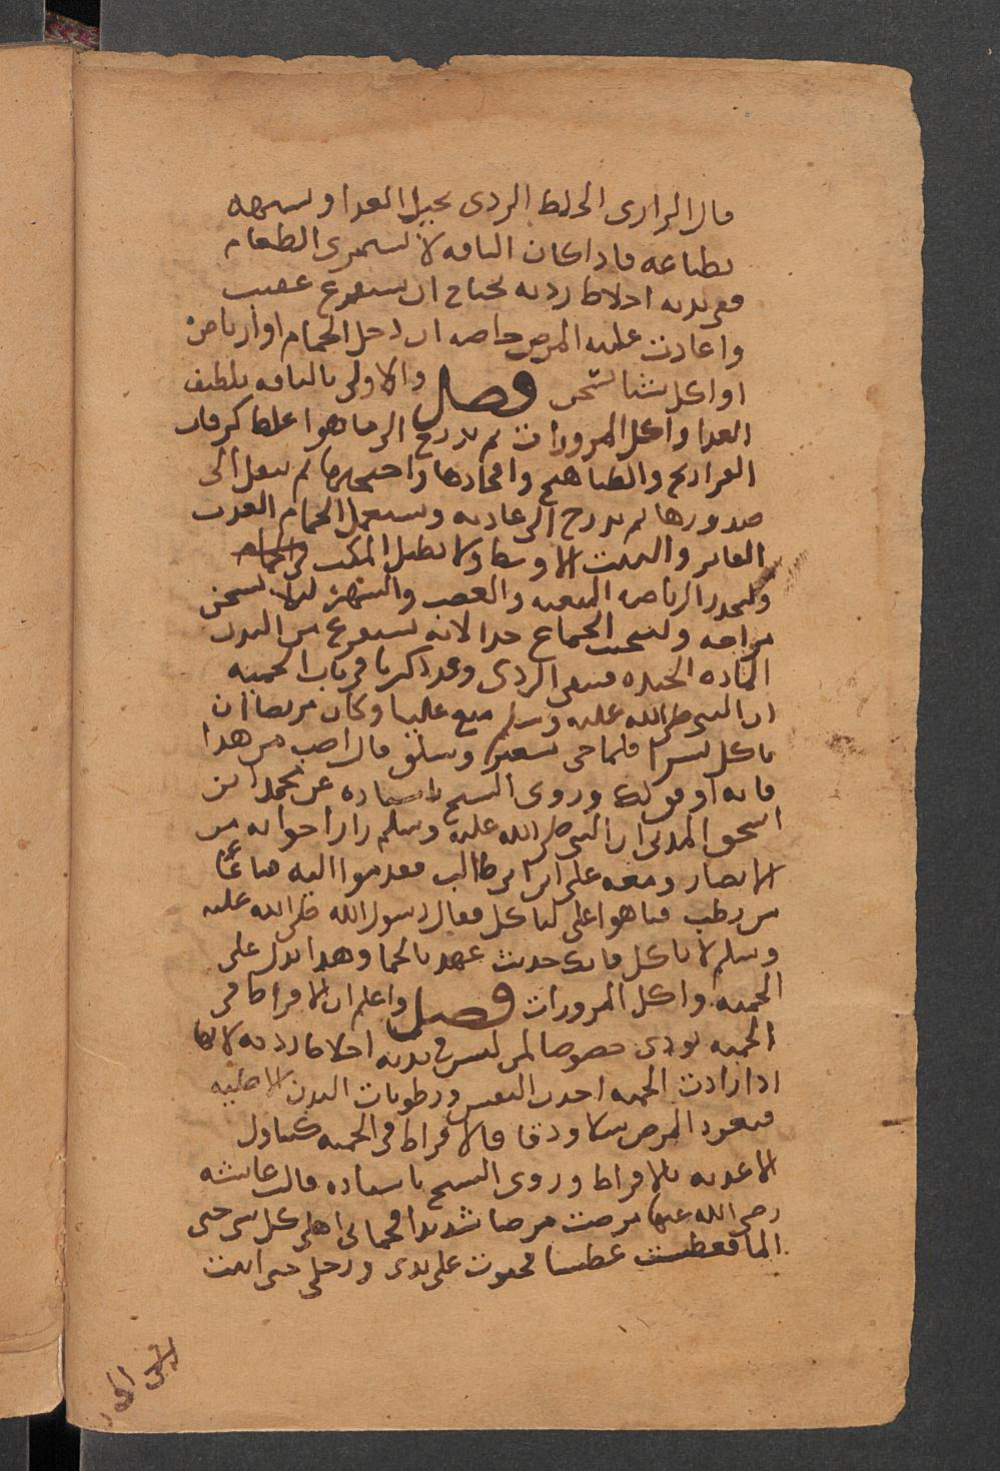 قال الرازى الخلط الردى يحيل الغدا ويشبهه
بطباعه فاذا كان الناقه لا يستمرى الطعام
ففى بدنه اخلاط رديه يحتاج ان يستفرغ
واعادت عليه المرض خاصه ان دخل الحمام او ارتاض
او اكل شيا يسخن فصل والاولى بالناقه تلطيف
الغدا واكل المزورات ثم يتدرج الى ما هو اغلظ
الفراريج والطياهيج واتخاذها واجنحتها ثم ينتقل الى
صدورها ثم يتدرج الى عادته ويستعمل الحمام العذب
الفاتر والبيت الاوسط ولا يطيل المكث فى الحمام
وليحذر الرياضه المتعبه والغضب والسهر ليلا يسخن
مزاجه وليجتنب الجماع جدا لانه يستفرغ من البدن
الماده الجيده فيبقى الردى وقد ذكرنا فى باب الحميه
ان النبى صلى الله عليه وسلم منع عليا وكان مريضا ان
ياكل بسرا فلما جى بشعير وسلق قال اصب من هذا
فانه اوفق لك وروى الشيخ باسناده عن محمد ابن
اسحق المدنى ان النبى صلى الله عليه وسلم زار اخوانه من
الانصار ومعه على ابن ابى طالب فقدموا اليه صاعا
من رطب فاهوا على لياكل فقال رسول الله صلى الله عليه
وسلم لا تاكل فانك حديث عهد بالحما وهذا يدل على
الحميه واكل المزورات فصل واعلم ان الافراط فى
الحميه يوذى خصوصا لمن ليس فى بدنه اخلاط رديه لانها
اذا زادت الحميه اخذت النفس ورطوبات البدن الاصليه
فيعود المرض سلا ودقا فالافراط فى الحميه كتناول
الاغذيه بالافراط وروى الشيخ باسناده قالت عايشه
رضى الله عنها مرضت مرضا شديدا فحمانى اهلى كل شى حتى
الما فعطشت عطشا فحبوت على يدى ورجلى حتى اتيت